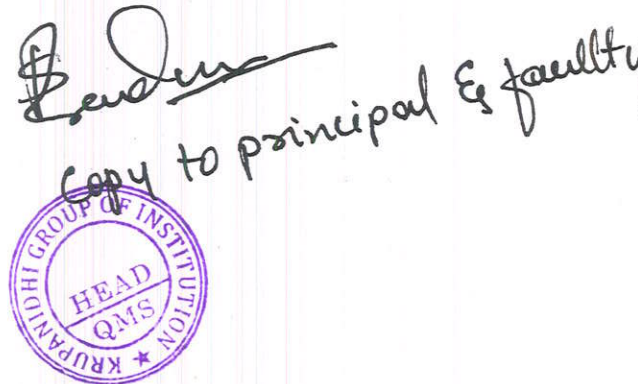 Copy to principal &
KRUPANIDHI GROUP OF INSTITUTION ★
HEAD
QMS